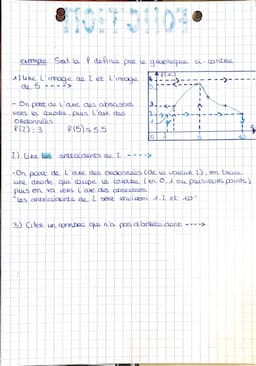 FONCTION
exemple: Soit la f définie par le graphique ci-contre
1) Lire l'image de 2 et l'image
de 5 ---->
- On part de l'axe des abscisses
vers la courbe, puis l'axe des
ordonnées
f(2)=3 f(5)=5.5
2) Lire les antécédents de 2 ---->
- On part de l'axe des ordonnées (de la valeur 2), on trace
une droite qui coupe la courbe (en 0, 1 ou plusieurs points)
puis on va vers l'axe des abscisses
"les antécédents de 2 sont environ 1.2 et 10"
3) Citer un nombre qui n'a pas d'antécédent ---->